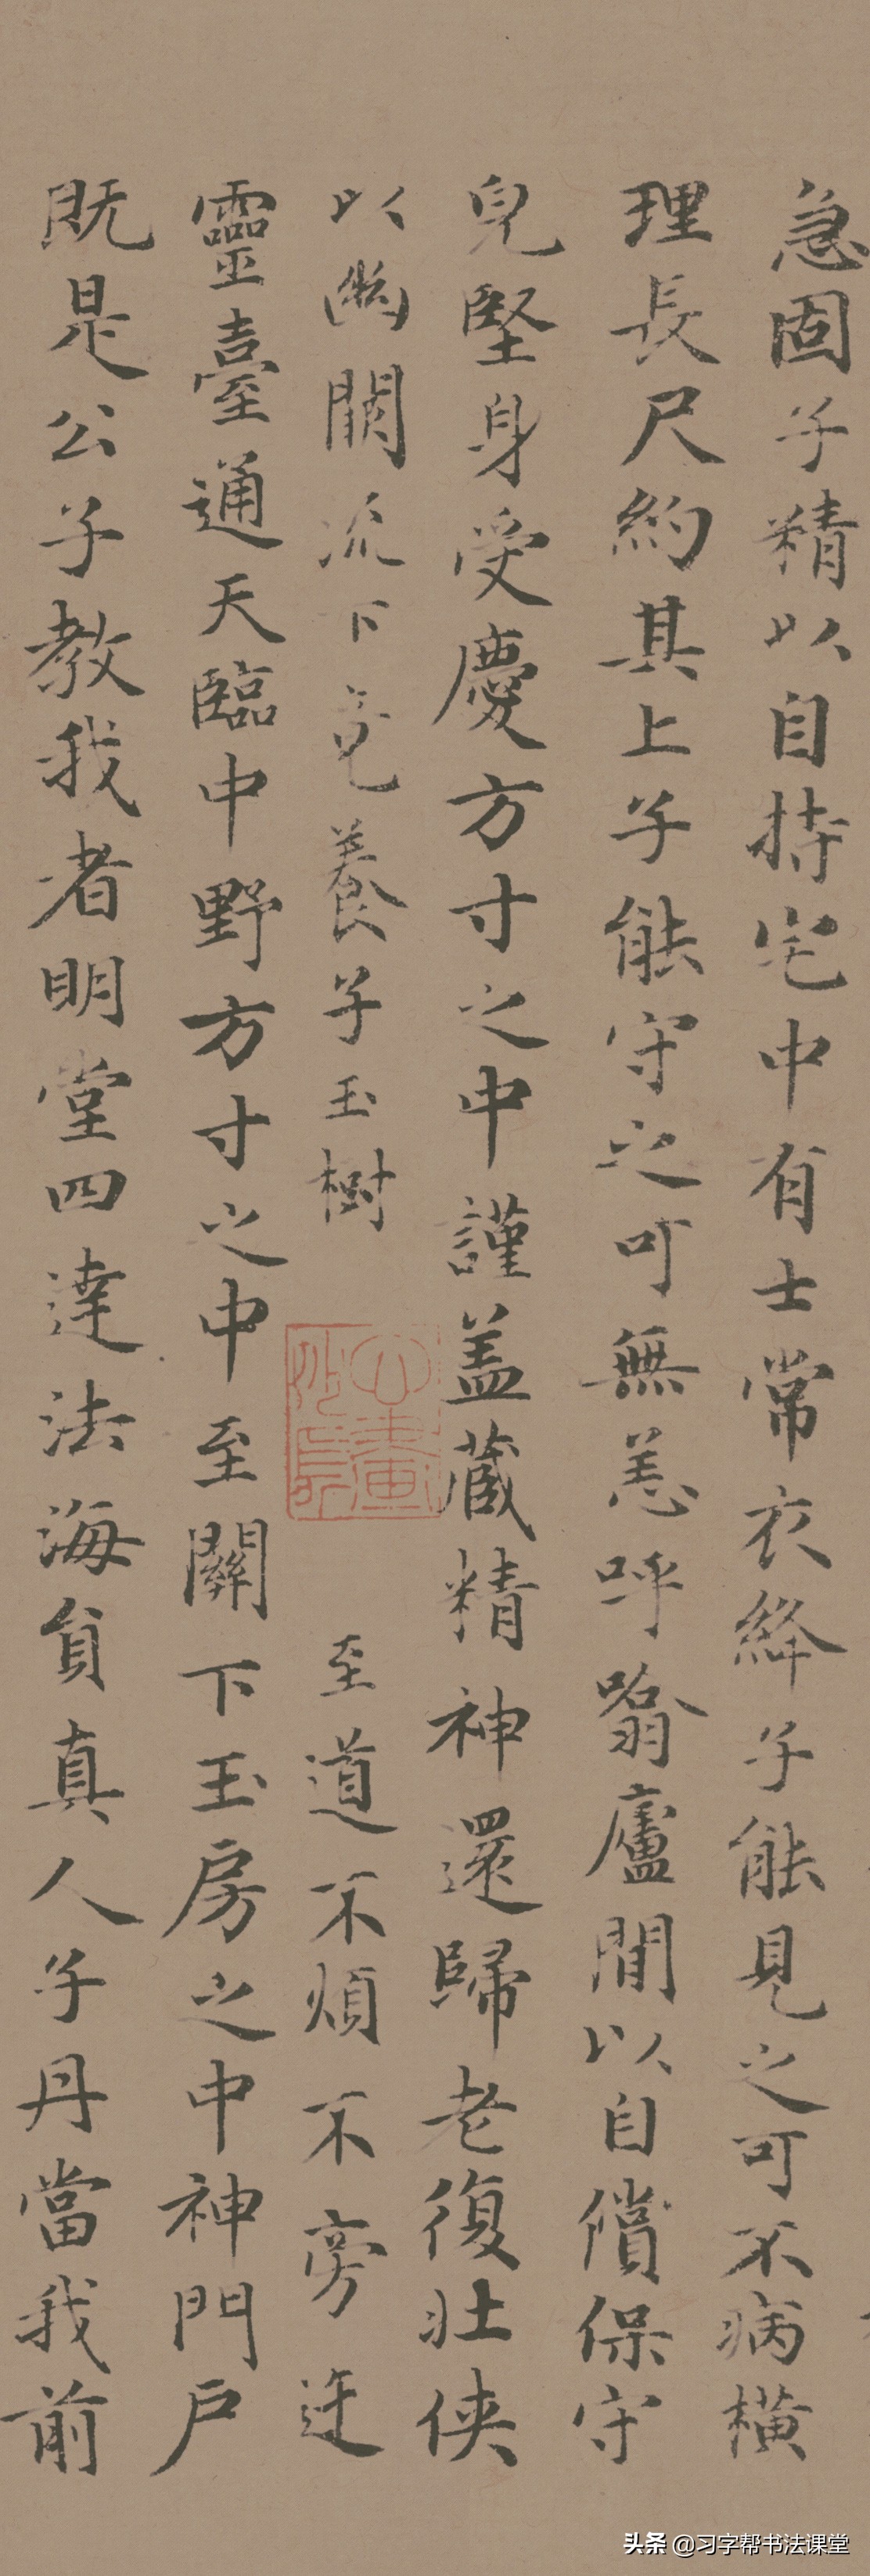 急固子精以自持宅中有士常衣絳子能見之可不病橫
理長尺約其上子能守之可無恙呼噏廬間以自償保守
皃堅身受慶方寸之中謹盖藏精神還歸老復壯俠
以幽闕流下竟養子玉樹 至道不煩不旁迕
靈臺通天臨中野方寸之中至關下玉房之中神門戶
既是公子教我者明堂四達法海負真人子丹當我前
头条 @习字帮书法课堂